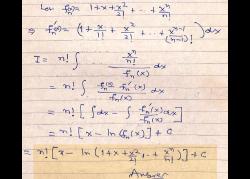 Let fₙ(x) = 1 + x + x²/2! + .. + xⁿ/n!
⇒ fₙ'(x) = (1 + x/1! + x²/2! + .. + xⁿ⁻¹/(n-1)!) dx
I = n! ∫ (xⁿ/n!)/fₙ(x) dx
= n! ∫ (fₙ(x) - fₙ'(x))/fₙ(x) dx
= n! [∫ dx - ∫ fₙ'(x)/fₙ(x) dx]
= n! [x - ln(fₙ(x))] + C
= n! [x - ln(1 + x + x²/2! + .. + xⁿ/n!)] + C
Answer